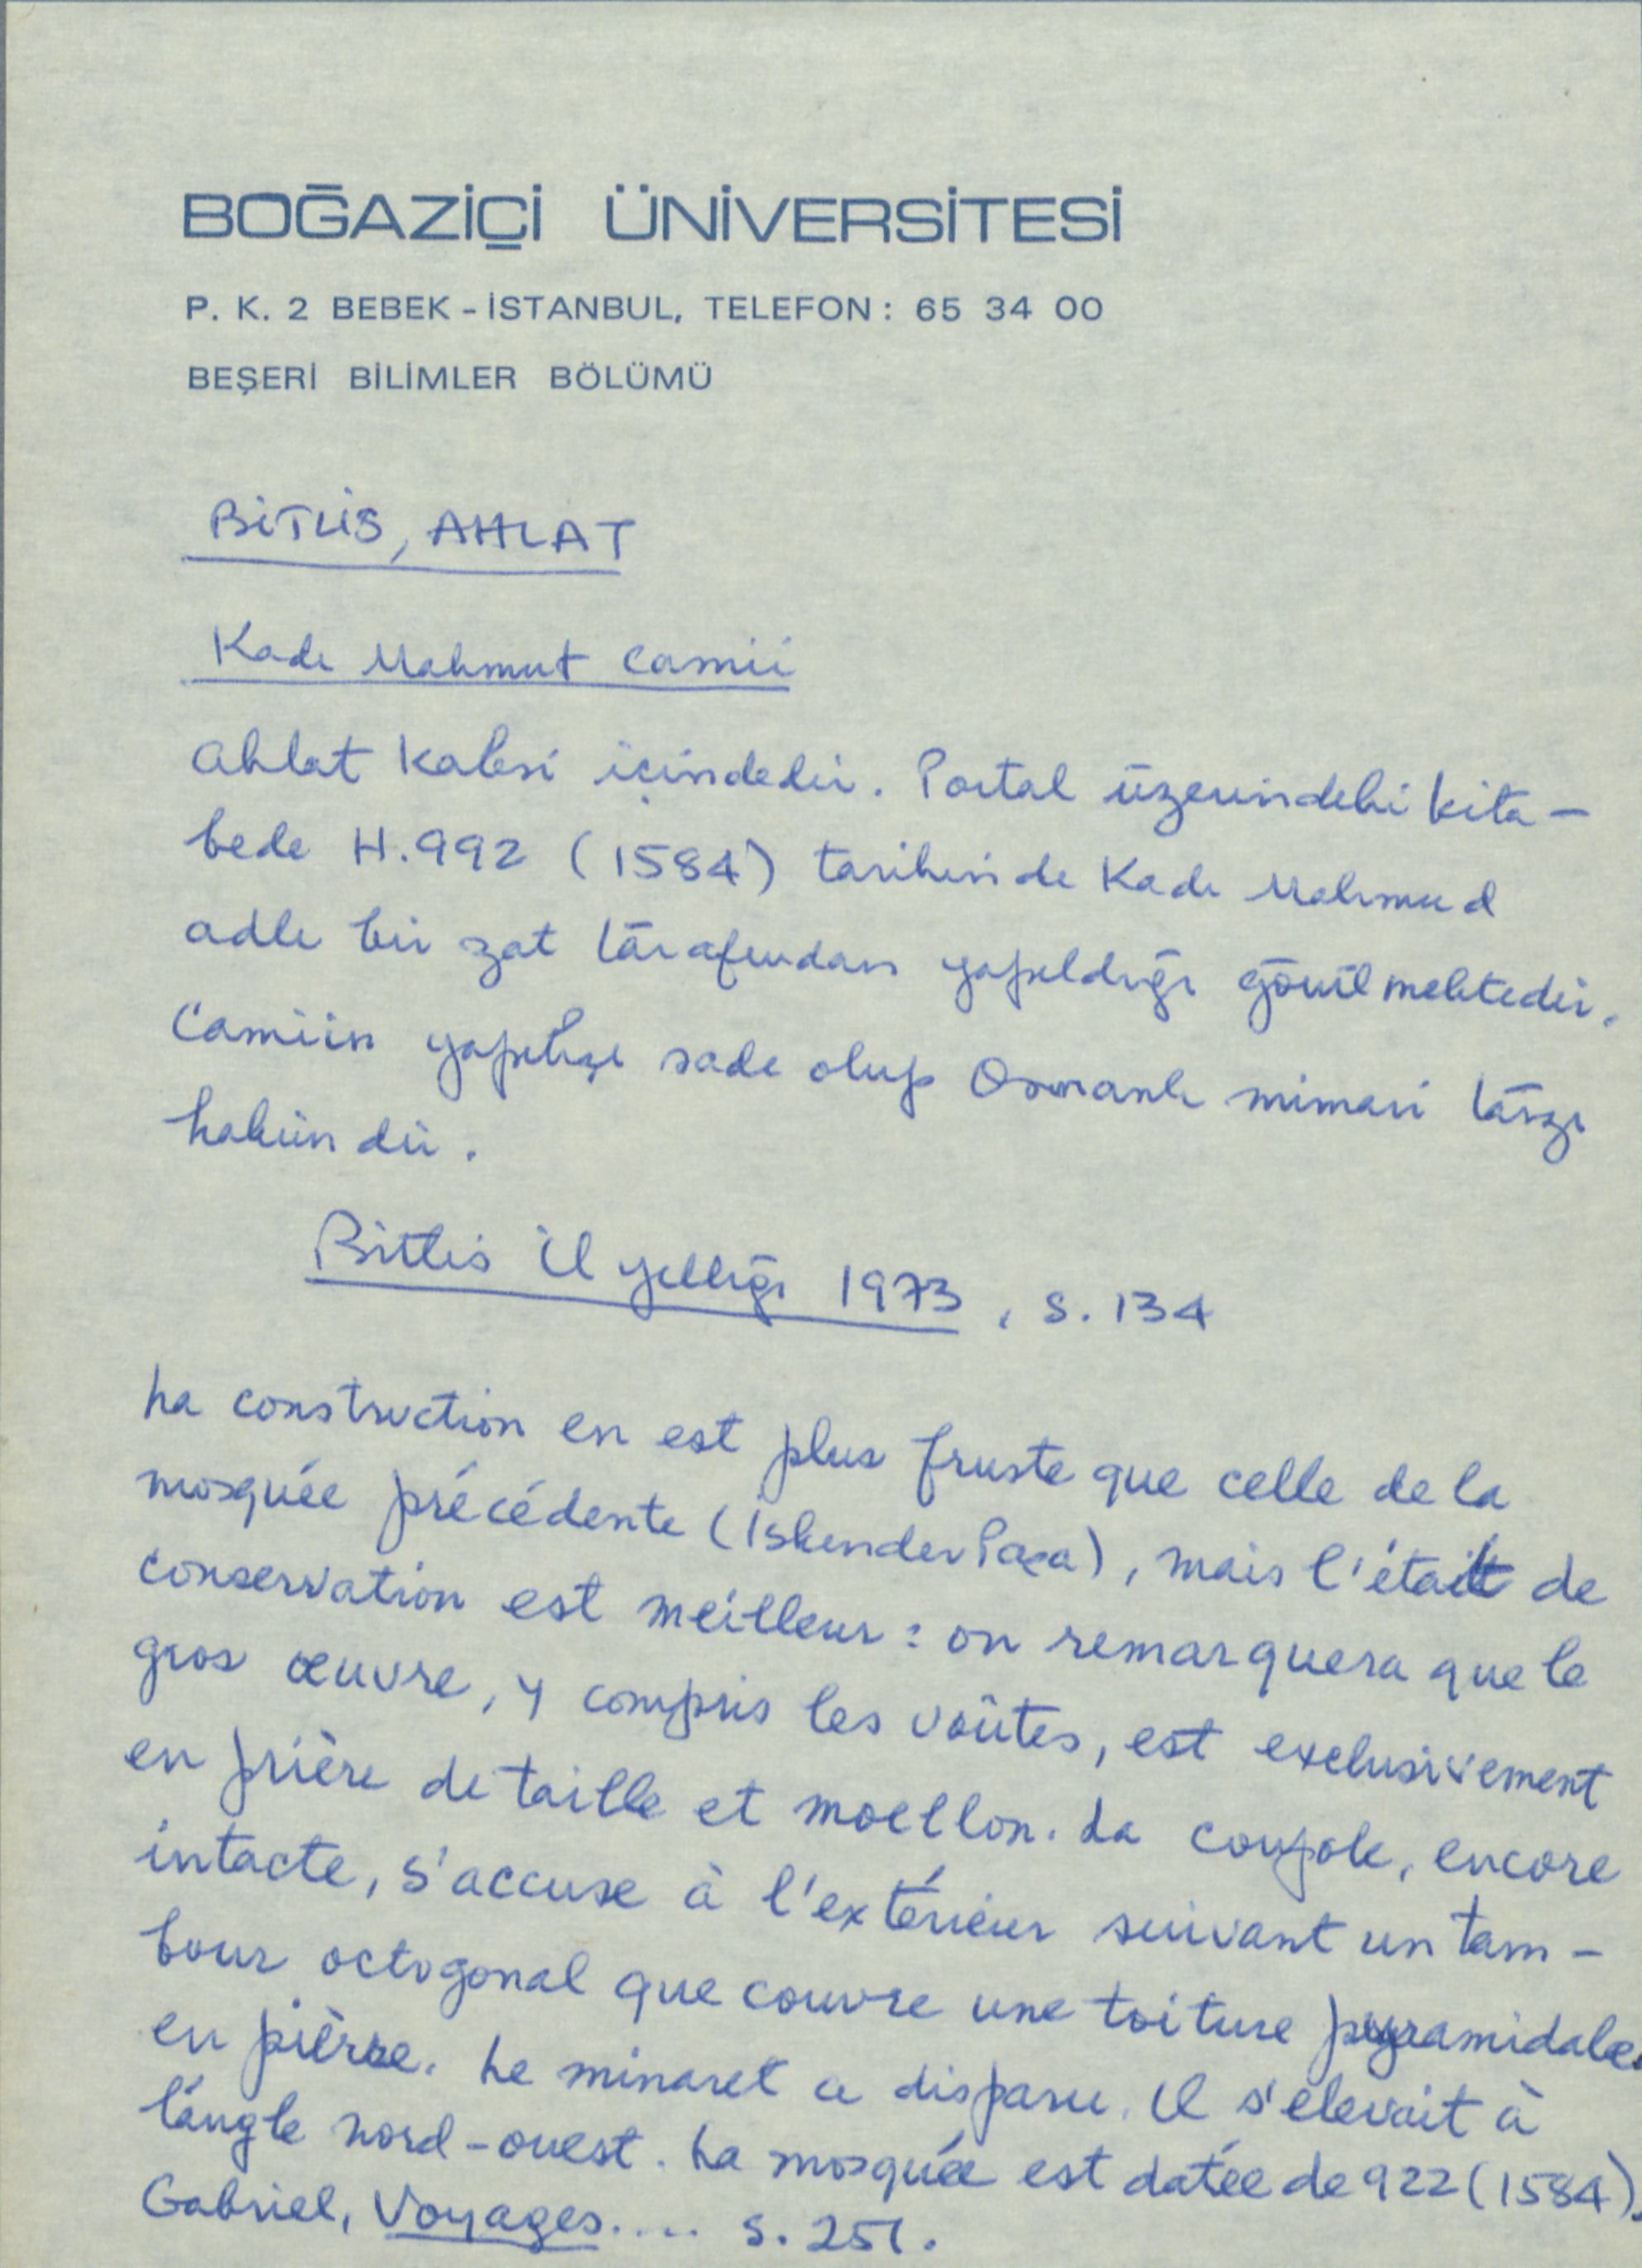 BOĞAZİÇİ ÜNİVERSİTESİ
P. K. 2 BEBEK - İSTANBUL, TELEFON : 65 34 00
BEŞERİ BİLİMLER BÖLÜMÜ
BİTLİS, AHLAT
Kadı Mahmut Camii
Ahlat Kalesi içindedir. Portal üzerindeki kita-
bede H.992 (1584) tarihinde Kadı Mahmud
adlı bir zat tarafından yapıldığı görülmektedir.
Camiin yapılışı sade olup Osmanlı mimari tarzı
hakimdir.
Bitlis İl Yıllığı 1973, s. 134
La construction en est plus fruste que celle de la
mosquée précédente (İskender Paşa), mais l'était de
conservation est meilleur : on remarquera que le
gros œuvre, y compris les voûtes, est exclusivement
en prière de taille et moellon. La coupole, encore
intacte, s'accuse à l'extérieur suivant un tam-
bour octogonal que couvre une toiture pyramidale
en pièrre. Le minaret a disparu. Il s'élevait à
l'angle nord-ouest. La mosquée est datée de 922 (1584).
Gabriel, Voyages.... s. 251.